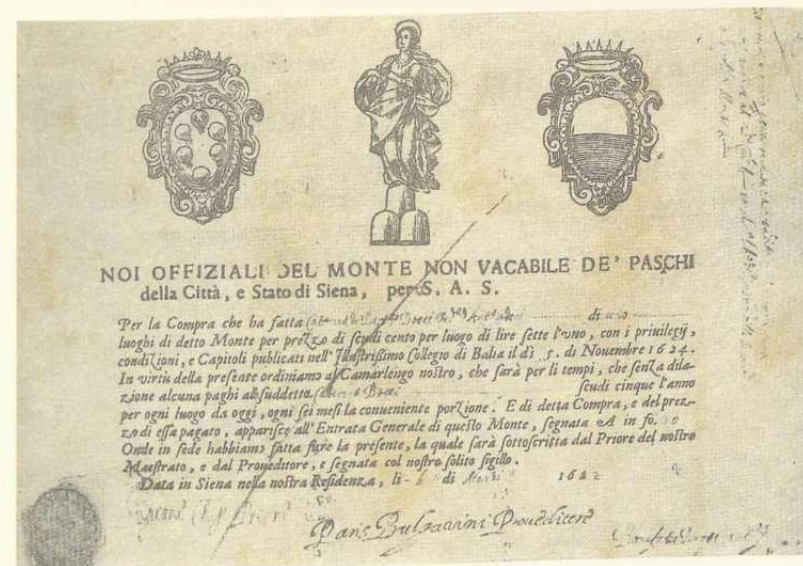 NOI OFFIZIALI DEL MONTE NON VACABILE DE' PASCHI
della Città, e Stato di Siena, per S. A. S.
Per la Compra che ha fatta di uno
luoghi di detto Monte per prezzo di scudi cento per luogo di lire sette l'vno, con i priuilegij,
condizioni, e Capitoli publicati nell'Illustrißimo Collegio di Balia il dì 5. di Nouembre 1624.
In virtù della presente ordiniamo al Camarlengo nostro, che sarà per li tempi, che senza dila-
zione alcuna paghi al suddetto scudi cinque l'anno
per ogni luogo da oggi, ogni sei mesi la conueniente porzione. E di detta Compra, e del prez-
zo di essa pagato, apparisce all'Entrata Generale di questo Monte, segnata A in fo.
Onde in fede habbiamo fatta fare la presente, la quale sarà sottoscritta dal Priore del nostro
Maestrato, e dal Proueditore, e segnata col nostro solito sigillo.
Data in Siena nella nostra Residenza, li di 162
Paris Bulgarini Proueditore